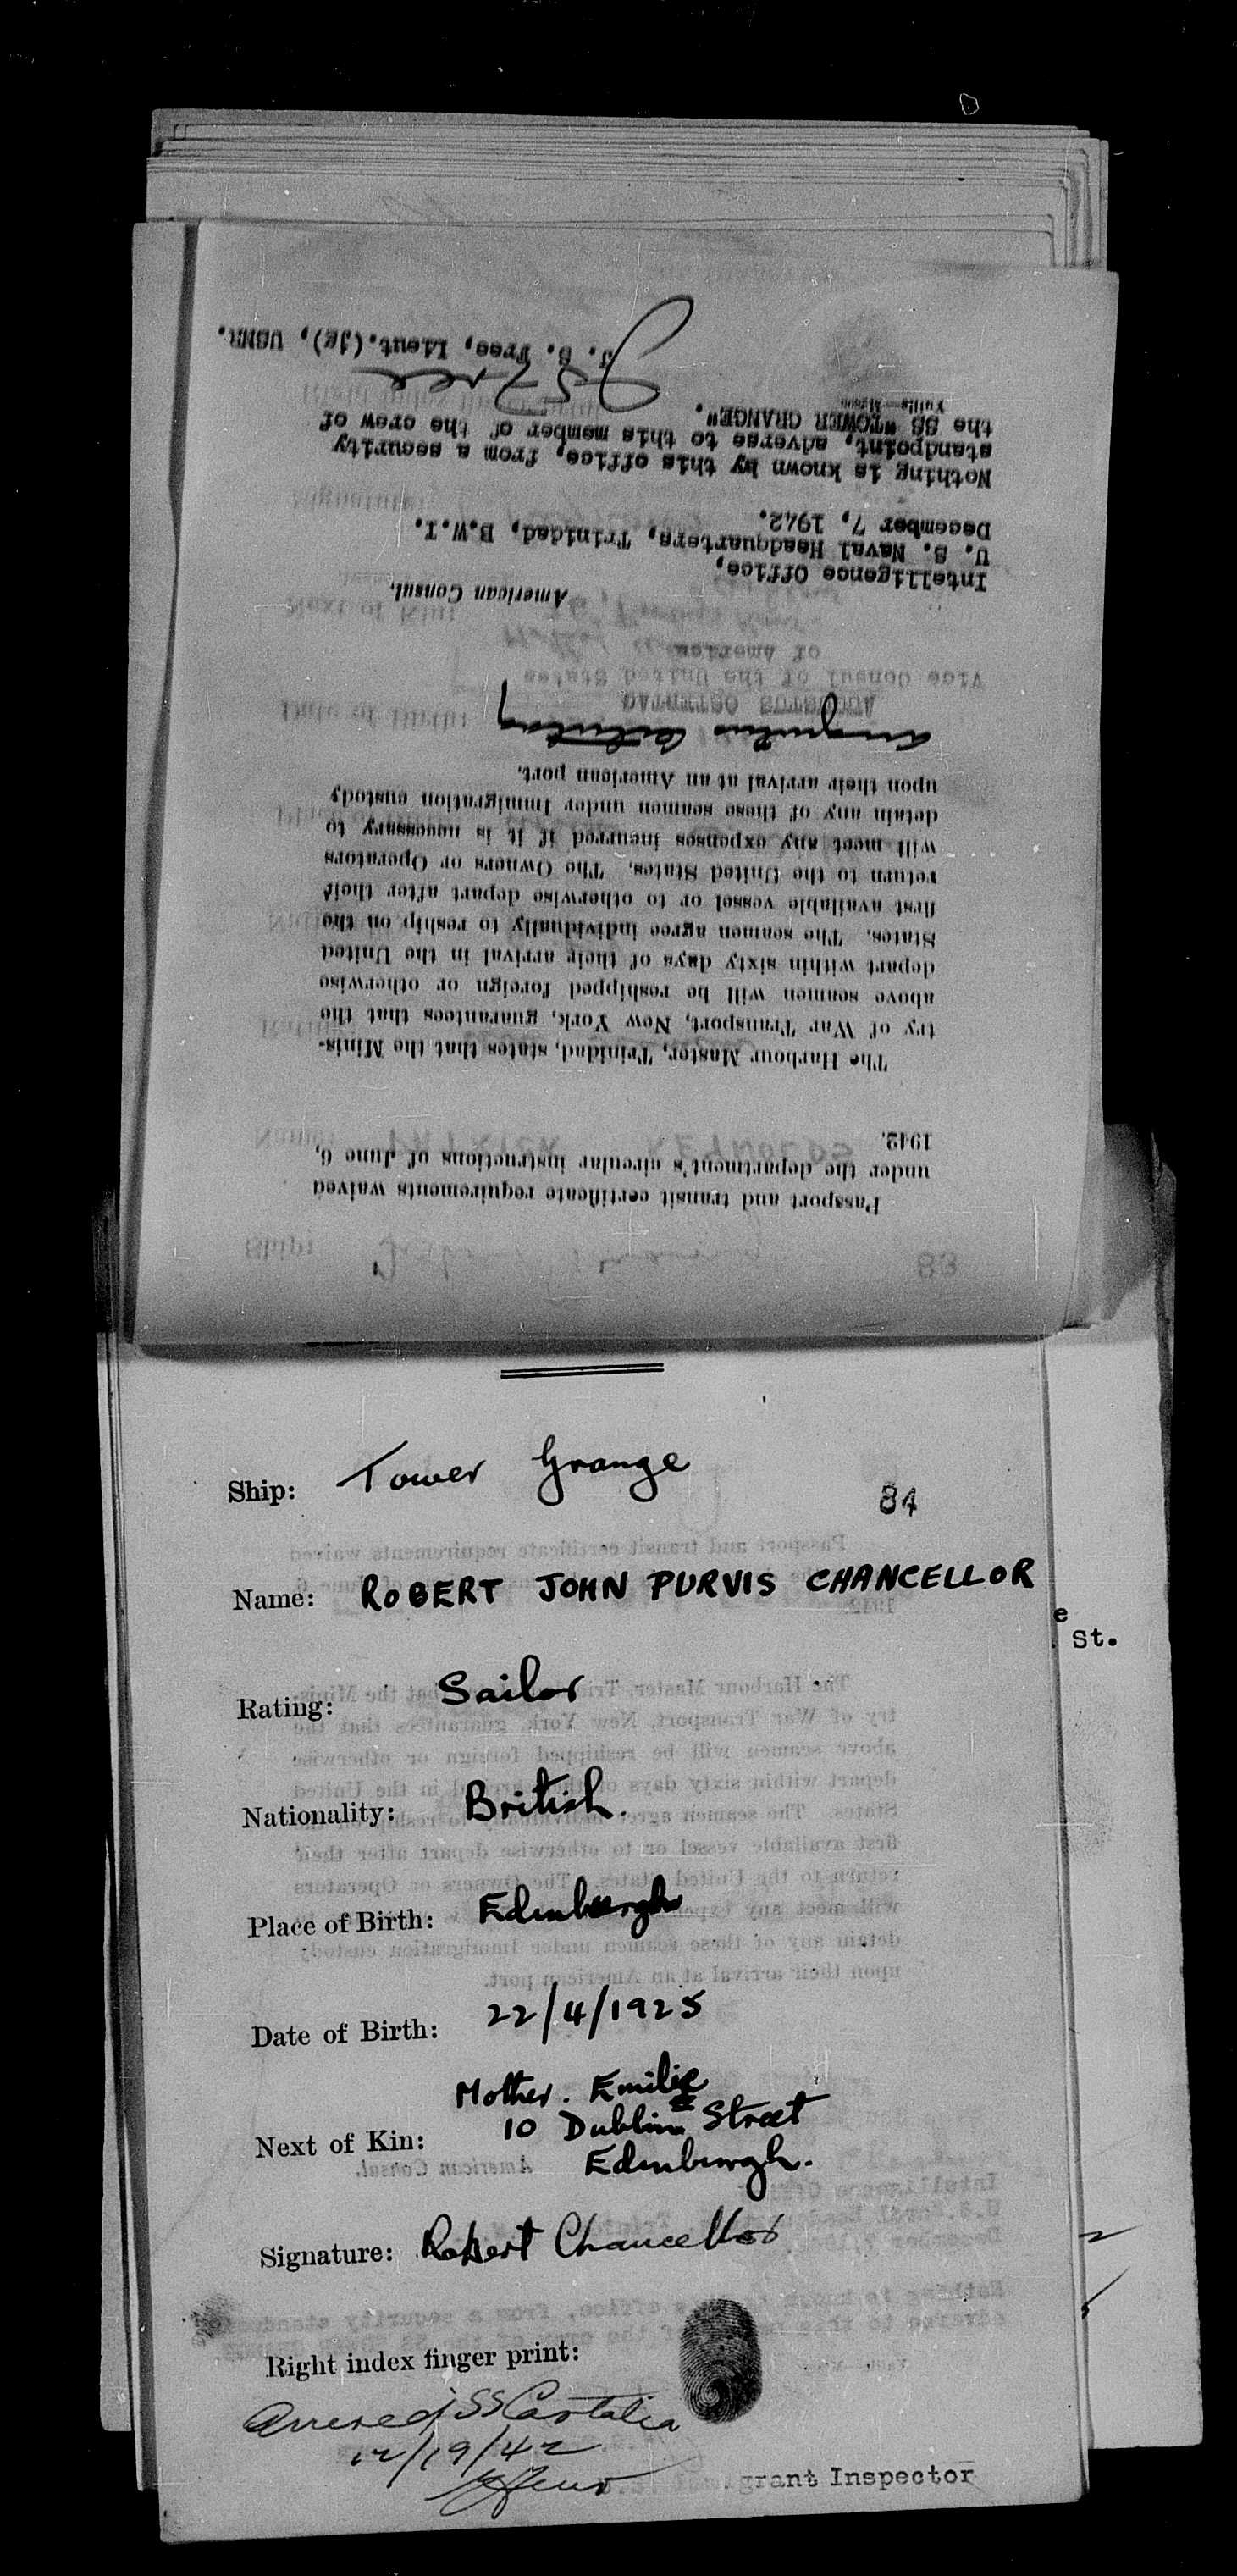 Passport and transit certificate requirements waived
under the department's circular instructions of June 6,
1942.
The Harbour Master, Trinidad, states that the Minis-
try of War Transport, New York, guarantees that the
above seamen will be reshipped foreign or otherwise
depart within sixty days of their arrival in the United
States. The seamen agree individually to reship on the
first available vessel or to otherwise depart after their
return to the United States. The Owners or Operators
will meet any expenses incurred if it is necessary to
detain any of these seamen under Immigration custody
upon their arrival at an American port.
AUGUSTUS OSTERTAG
Vice Consul of the United States
of America
American Consul.
Intelligence Office,
U. S. Naval Headquarters, Trinidad, B.W.I.
December 7, 1942.
Nothing is known by this office, from a security
standpoint, adverse to this member of the crew of
the SS "TOWER GRANGE".
J. S. Free
J. S. Free, Lieut.(jg), USNR.
83
Ship: Tower Grange
84
Name: ROBERT JOHN PURVIS CHANCELLOR
e
St.
Rating: Sailor
Nationality: British.
Place of Birth: Edinburgh
Date of Birth: 22/4/1925
Mother. Emilie
Next of Kin: 10 Dublin Street
Edinburgh.
Signature: Robert Chancellor
Right index finger print:
Arrived SS Castalia
12/19/42
grant Inspector